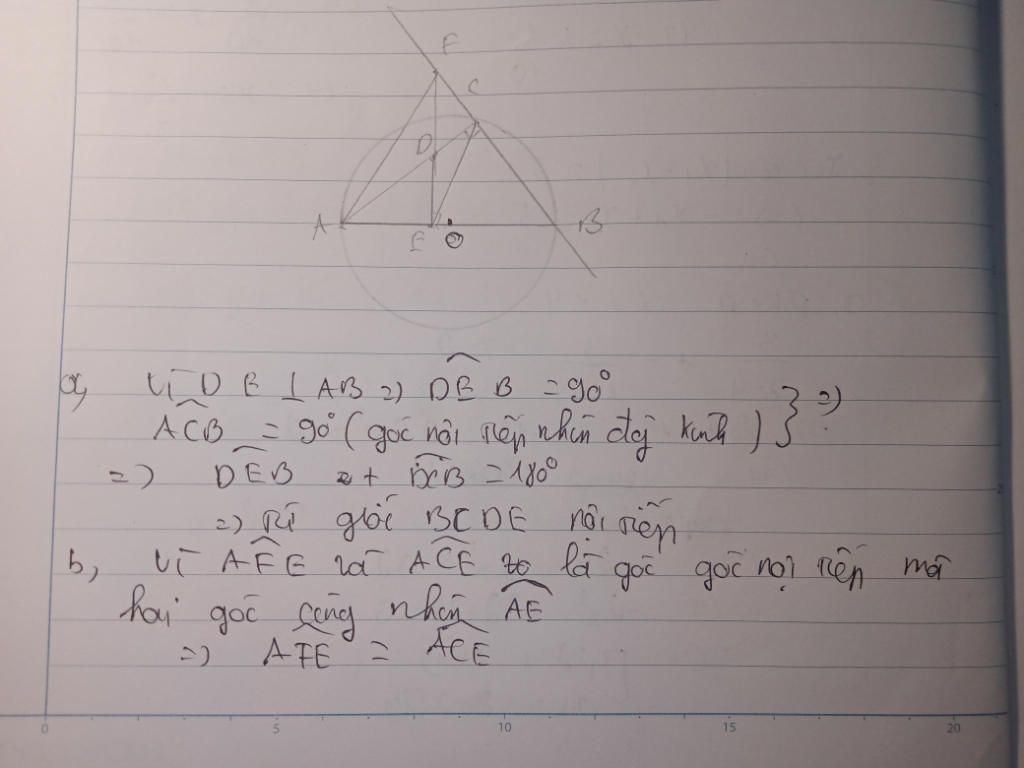 F
C
D
A
E
O
B
a, Vì DE ⊥ AB => DEB = 90°
ACB = 90° (góc nội tiếp chắn đg kính) } =>
=> DEB + DCB = 180°
=> tứ giác BCDE nội tiếp
b, Vì AFE và ACE là góc góc nội tiếp mà
hai góc cùng chắn AE
=> AFE = ACE
0 5 10 15 20